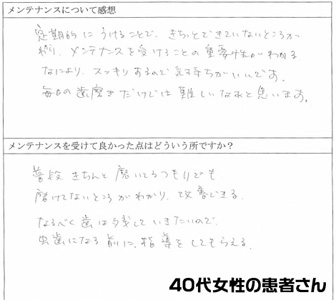 メンテナンスについて感想
定期的にうけることで、きちんとできていないところが
わかり、メンテナンスを受けることの重要性がわかる
なにより、スッキリするので気持ちがいいです。
毎日の歯磨きだけでは難しいなあと思います。
メンテナンスを受けて良かった点はどういう所ですか?
普段きちんと磨いてるつもりでも
磨けてないところがわかり、改善できる。
なるべく歯は残していきたいので、
虫歯になる前に、指導をしてもらえる。
40代女性の患者さん